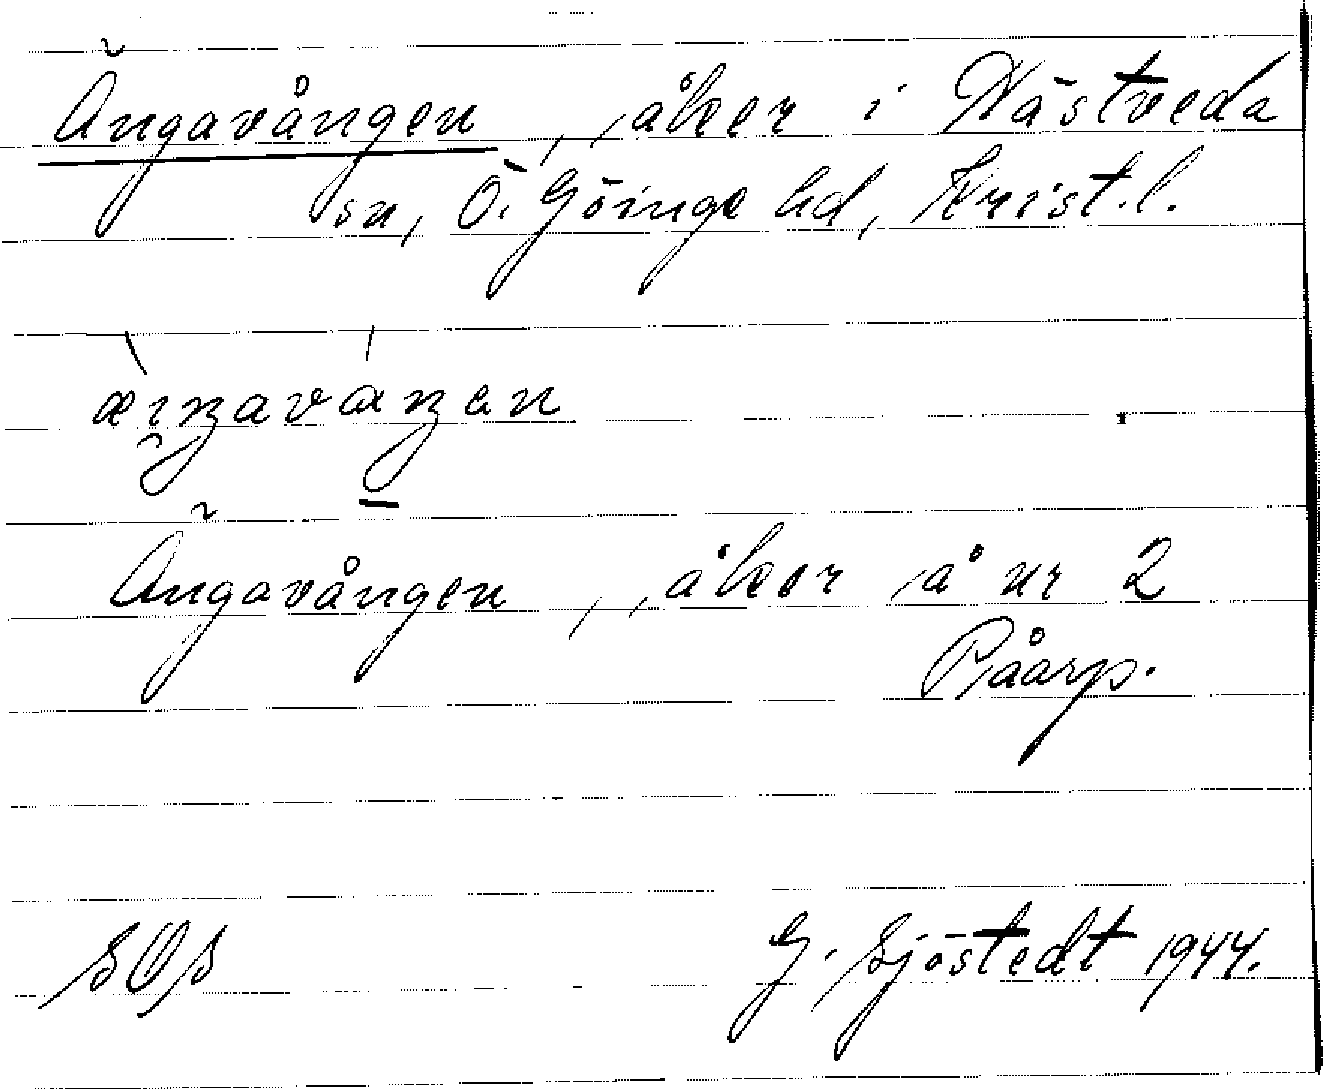 Ängavången, åker i Nästveda
sn, Ö. Göinge hd, Krist.l.
Ängavången, åker å nr 2
Råarp.
SOS
G. Sjöstedt 1944.